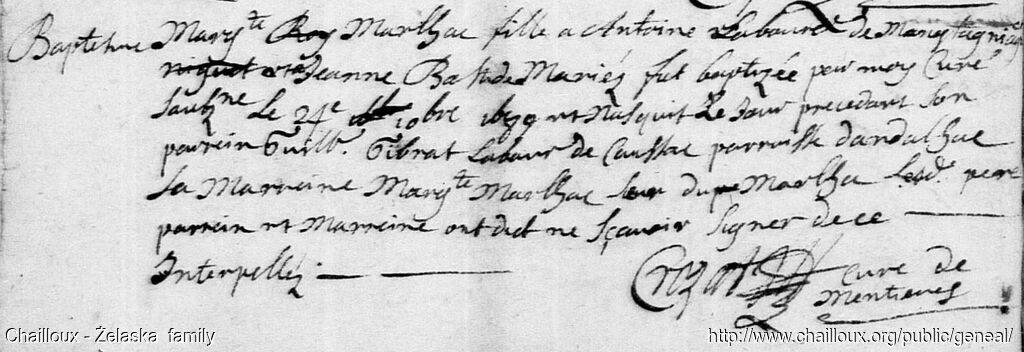 Baptesme Marg^te Marlhac fille a Antoine Laboureu^r de
et a Jeanne mariés fut baptizée par moy Curé
soubz^ne Le 24^e 10bre 1679 et Nasquit Le Jour precedant son
parrein Guill^e. Gibrat Labour^r de Caussac parroisse dandalhac
Sa Marreine Marg^te Marlhac du Marlhac Lesd^s. pere
parrein et Marreine ont dict ne sçavoir signer de ce
Interpellés.
Curé de
Mentieres
Chailloux - Żelaska family
http://www.chailloux.org/public/geneal/